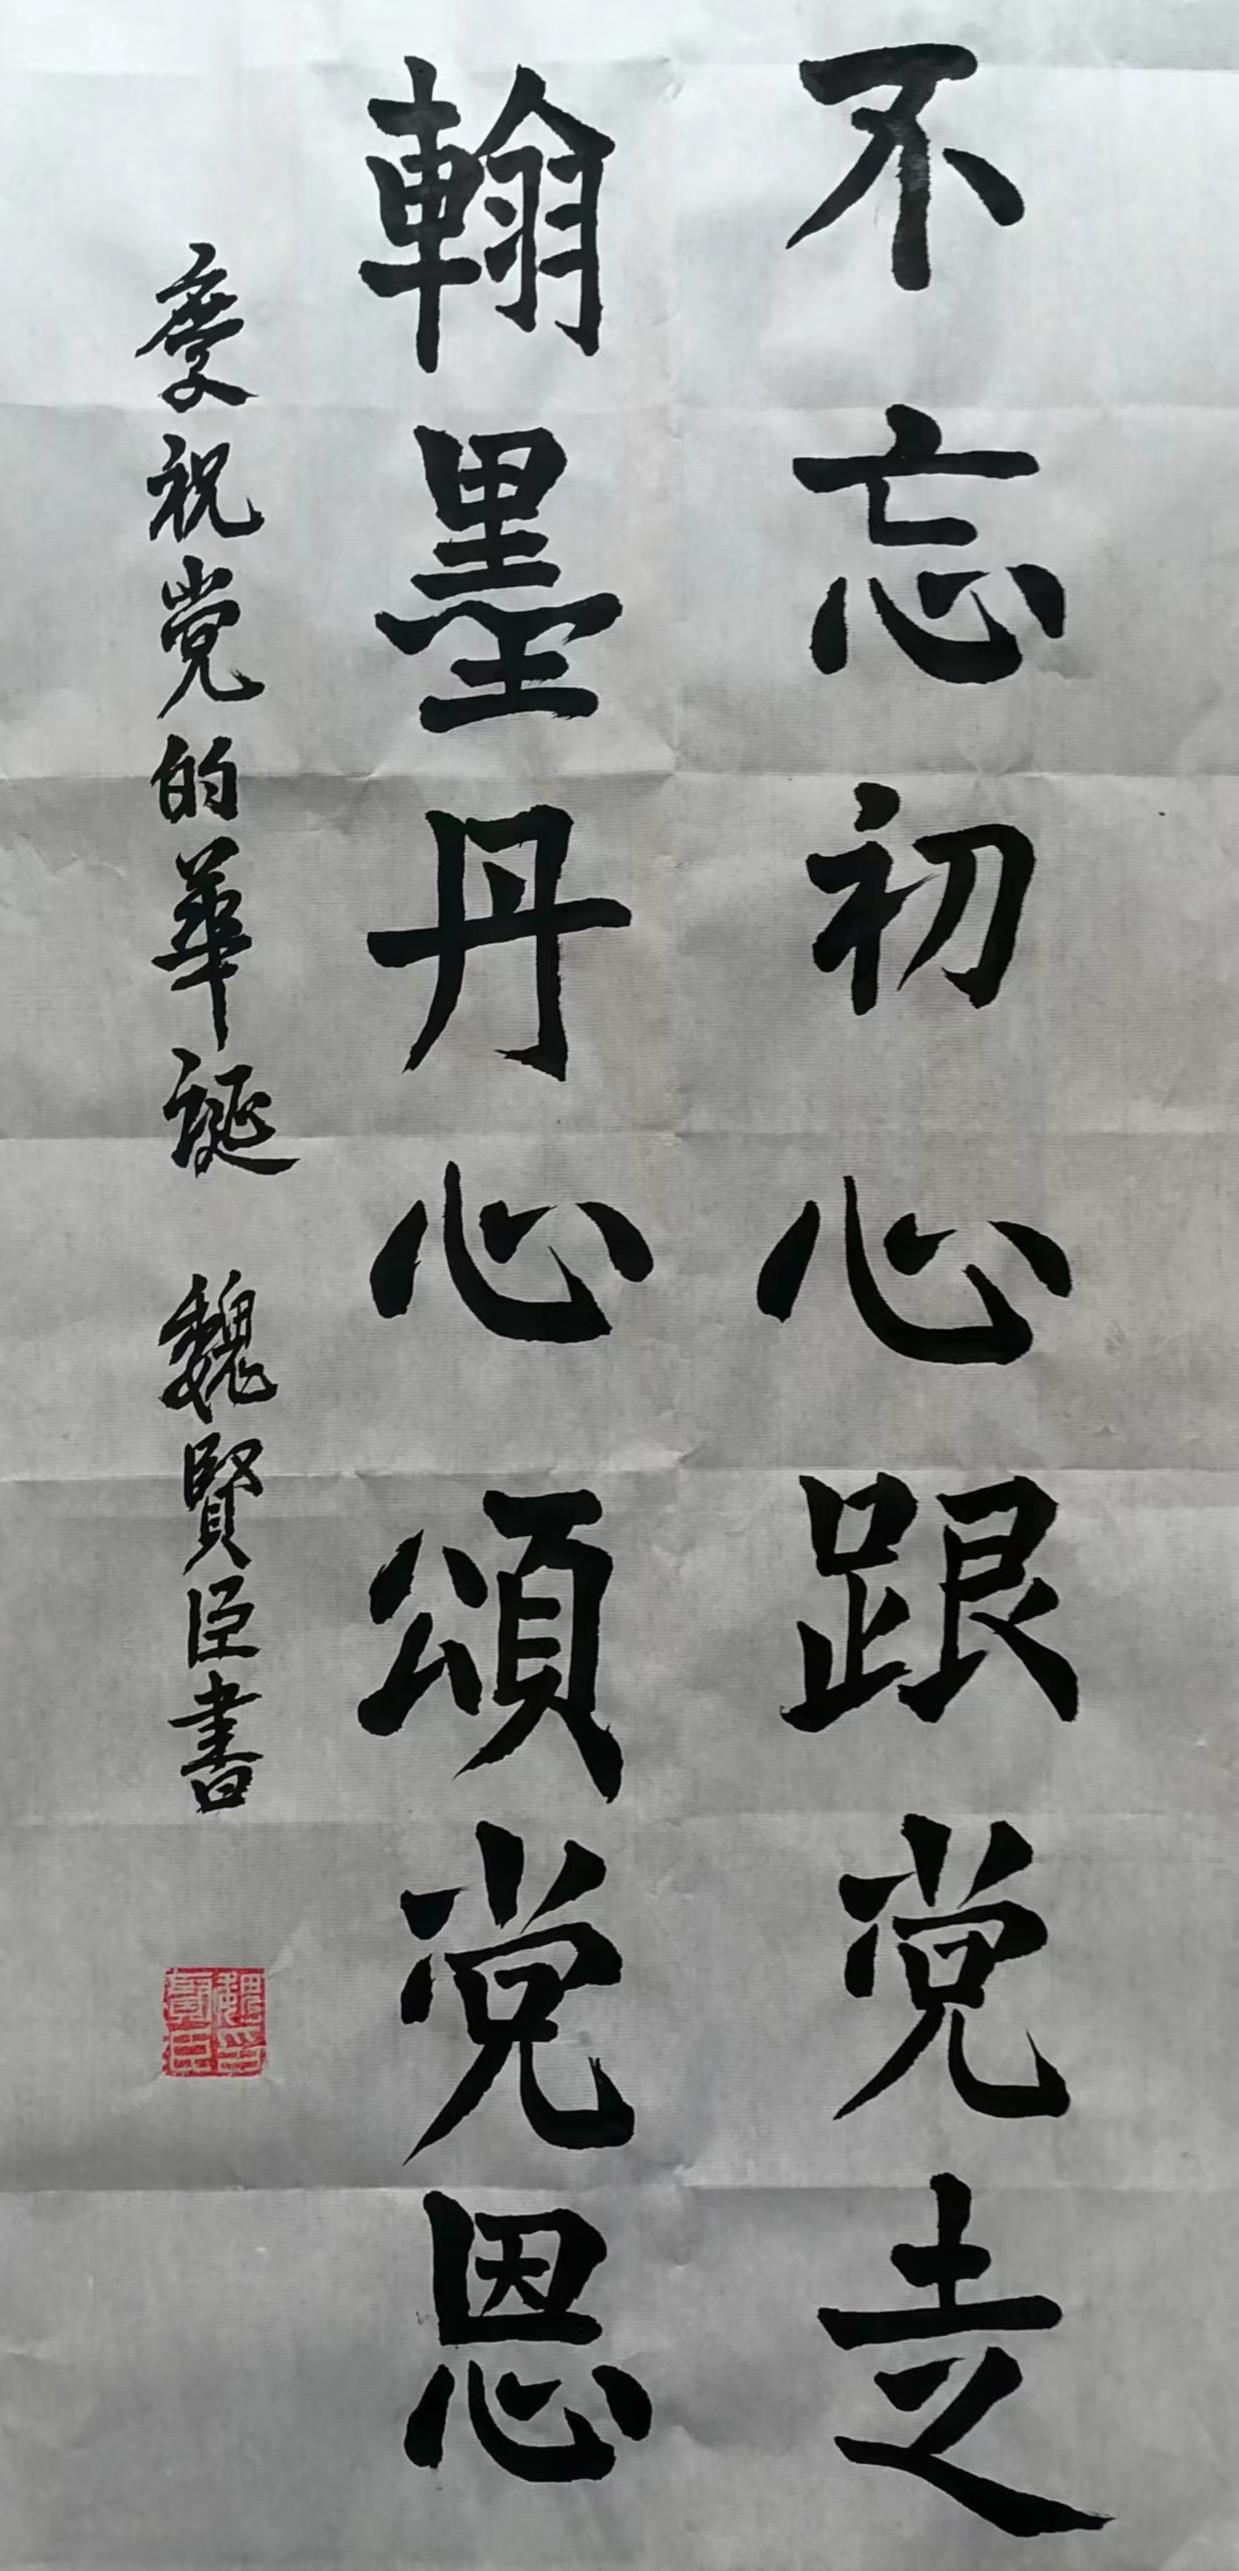 不忘初心跟党走
翰墨丹心頌党恩
慶祝党的華誕 魏賢臣書
魏印賢臣